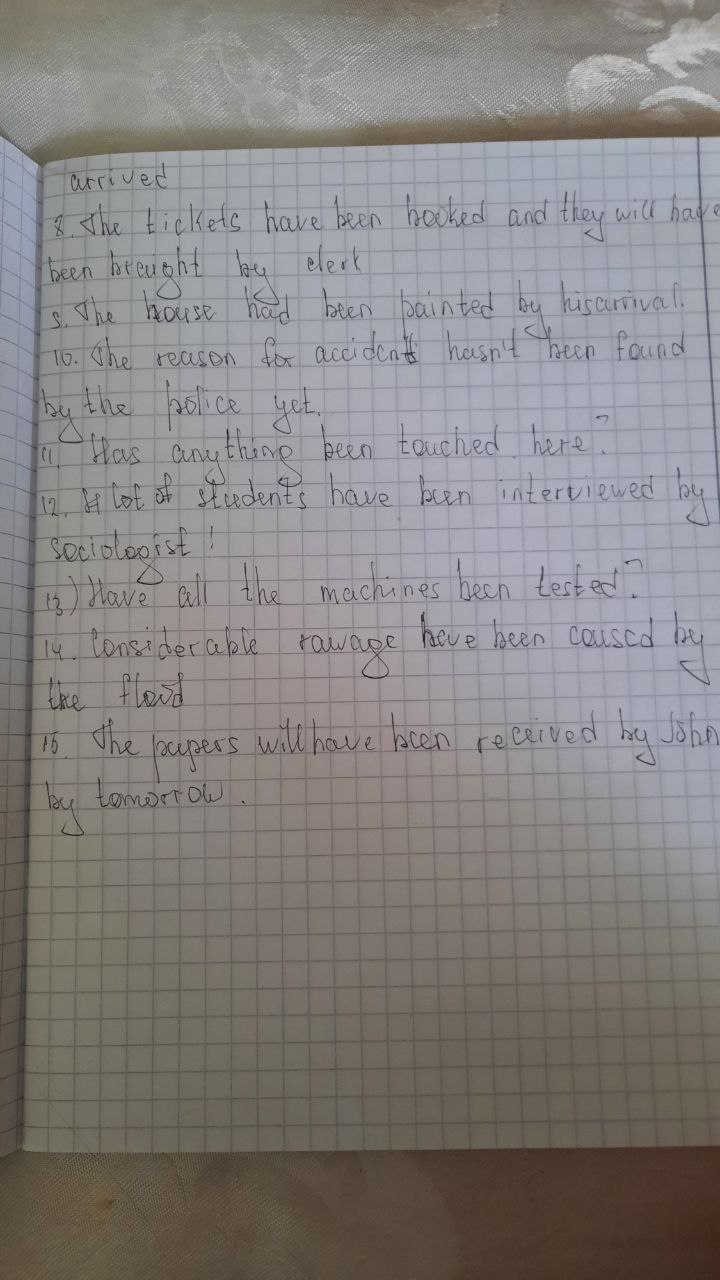 arrived
8. The tickets have been booked and they will have
been brought by clerk
9. The house had been painted by his arrival.
10. The reason for accident hasn't been found
by the police yet.
11. Has anything been touched here?
12. A lot of students have been interviewed by
sociologist!
13) Have all the machines been tested?
14. Considerable rawage have been caused by
the flood
15. The papers will have been received by John
by tomorrow.